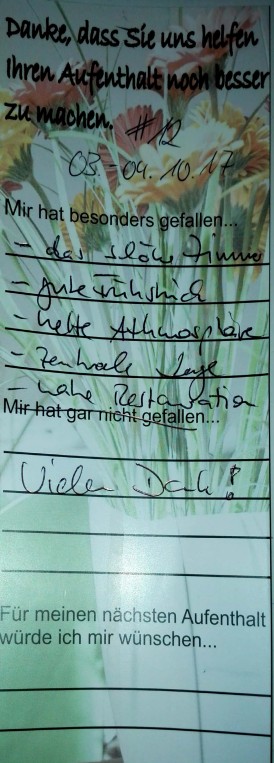 Danke, dass Sie uns helfen
Ihren Aufenthalt noch besser
zu machen.
#12
03.-04.10.17
Mir hat besonders gefallen...
- das schöne Zimmer
- gute Frühstück
- nette Athmosphäre
- zentrale Lage
- nahe Restauration
Mir hat gar nicht gefallen...
Vielen Dank!
Für meinen nächsten Aufenthalt
würde ich mir wünschen...